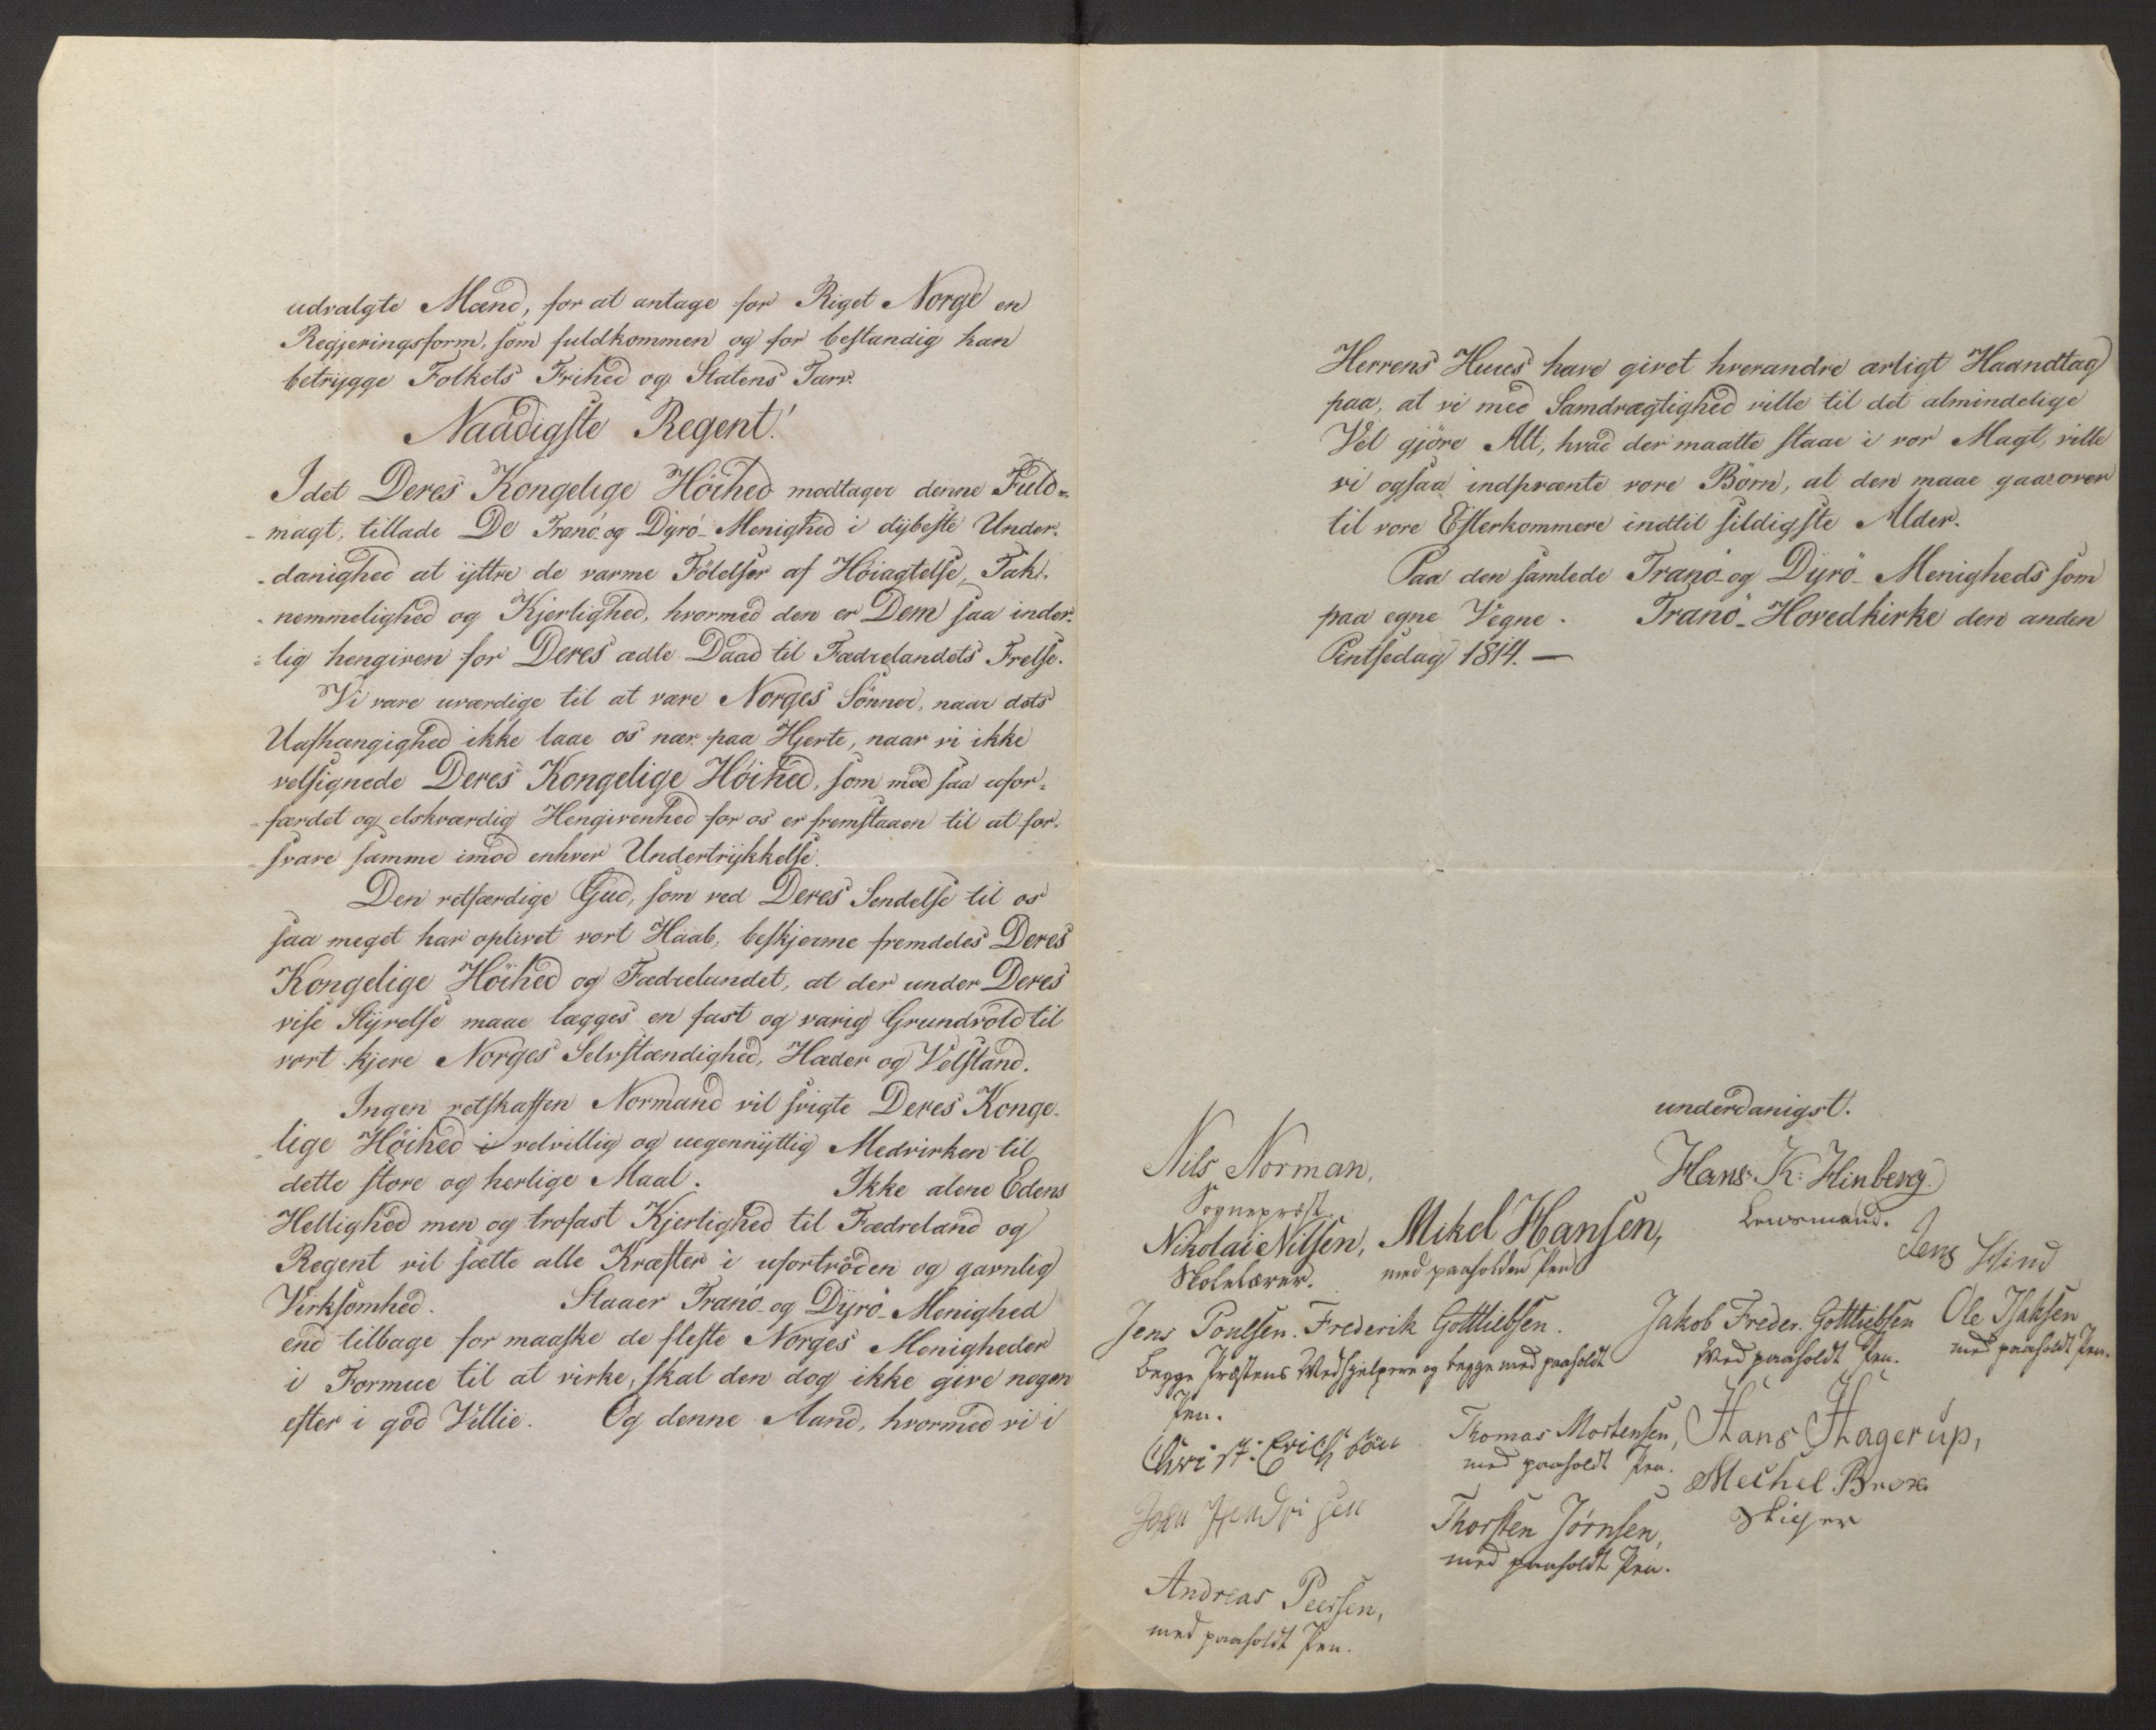 udvalgte Mænd, for at antage for Riget Norge en
Regjeringsform, som fuldkommen og for bestandig kan
betrygge Folkets Frihed og Statens Tarv.
Naadigste Regent!
Idet Deres Kongelige Höihed modtager denne Fuld=
-magt, tillade De Tranö- og Dyrö-Menighed i dybeste Under-
-danighed at yttre de varme Fölelser af Höiagtelse, Tak-
-nemmelighed og Kjerlighed, hvormed den er Dem saa inder-
=lig hengiven for Deres ædle Daad til Fædrelandets Frelse.
Vi vare uværdige til at være Norges Sönner, naar dets
Uafhængighed ikke laae os nær paa Hjerte, naar vi ikke
velsignede Deres Kongelige Höihed, som med saa ufor=
-færdet og elskværdig Hengivenhed for os er fremstaaen til at for-
-svare samme imod enhver Undertrykkelse.
Den retfærdige Gud, som ved Deres Sendelse til os
saa meget har oplivet vort Haab, beskjerme fremdeles Deres
Kongelige Höihed og Fædrelandet, at der under Deres
vise Styrelse maae lægges en fast og varig Grundvold til
vort kjere Norges Selvstændighed, Hæder og Velstand.
Ingen retskaffen Normand vil svigte Deres Konge-
-lige Höihed i velvillig og uegennyttig Medvirken til
dette store og herlige Maal. Ikke alene Edens
Hellighed men og trofast Kjerlighed til Fædreland og
Regent vil sætte alle Kræfter i ufortröden og gavnlig
Virksomhed. Staaer Tranö- og Dyrö-Menighed
end tilbage for maaske de fleste Norges Menigheder
i Formue til at virke, skal den dog ikke give nogen
efter i god Villie. Og denne Aand, hvormed vi i
Herrens Huus have givet hverandre ærligt Haandtag
paa, at vi med Samdrægtighed ville til det almindelige
Vel gjöre Alt, hvad der maatte staae i vor Magt, ville
vi ogsaa indprænte vore Börn, at den maae gaae over
til vore Efterkommere indtil sildigste Alder.
Paa den samlede Tranö- og Dyrö-Menigheds som
paa egne Vegne. Tranö-Hovedkirke den anden
Pintsedag 1814. —
underdanigst.
Nils Norman,
Sognepræst.
Hans K: Hinberg
Lensmand.
Nikolai Nilsen,
Skolelærer.
Mikel Hansen,
med paaholden Pen
Jens Hind
Jens Poulsen. Frederik Gottliebsen.
begge Præstens Medhjelpere og begge med paaholdt
Pen.
Jakob Freder. Gottliebsen
Med paaholdt Pen.
Ole Isaksen
med paaholdt Pen.
Christ: Erichsön
Thomas Mortensen,
med paaholdt Pen.
Hans Hagerup,
Mechel Brox
Hendrichsen
Thorsten Jörnsen,
med paaholdt Pen.
Andreas Peersen,
med paaholdt Pen.